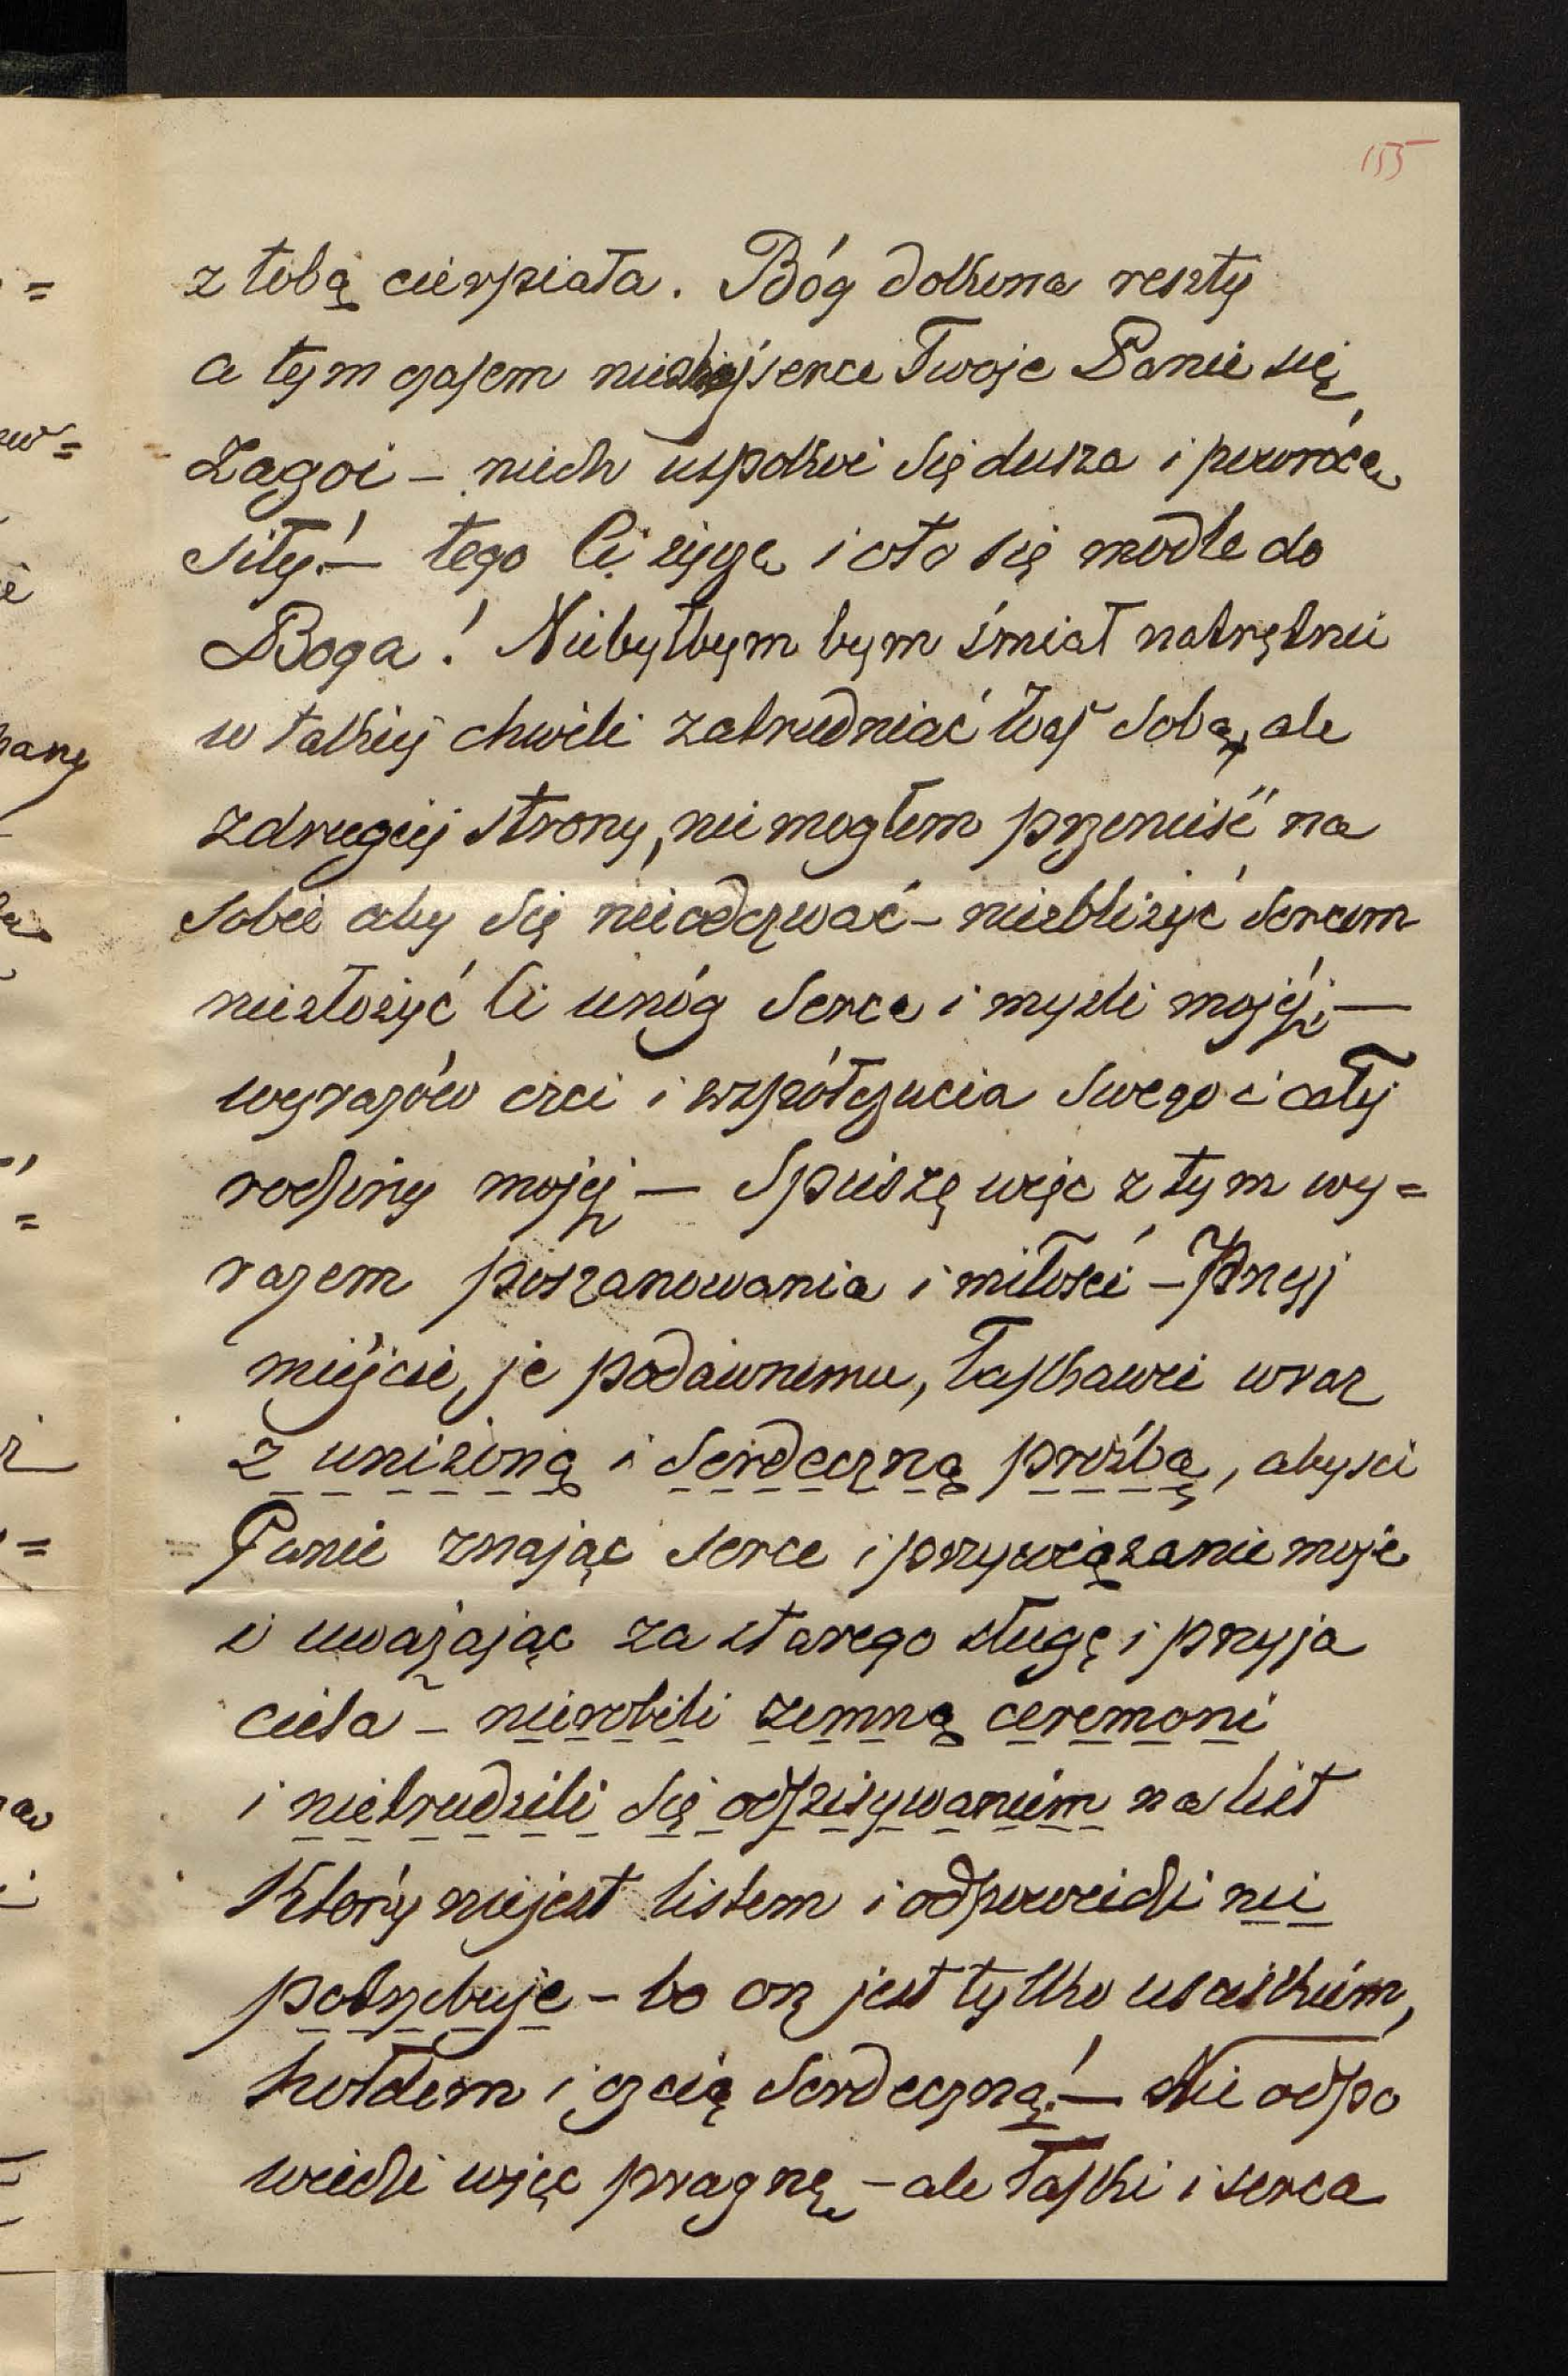 155
z tobą cierpiała. Bóg dokona reszty
a tym czasem niech serce Twoje Panie się
zagoi – niech uspokoi się dusza i powrócą
siły! – tego Ci życzę i oto się modlę do
Boga! Niebyłbym bym śmiał natrętnie
w takiej chwili zatrudniać Was sobą, ale
zdrugiej strony, nie mogłem przenieść na
sobie aby się nieodezwać – niezbliżyć sercem
niezłożyć Ci unóg serca i myśli mojéj –
wyrazów czci i współczucia swego i całej
rodziny mojej – Spieszę więc z tym wy=
razem poszanowania i miłości – Przyj
miejcie, je podawnemu, łaskawie wraz
z uniżoną i serdeczną prośbą, abyście
Panie znając serce i przywiązanie moje
i uważając za starego sługę i przyja
ciela – nierobili zemną ceremonï
i nietrudzili się odpisywaniem na list
Który niejest listem i odpowiedzi nie
potrzebuje – bo on jest tylko uściskiem,
hołdem i czcią serdeczną! – Nie odpo
wiedzi więc pragnę – ale łaski i serca